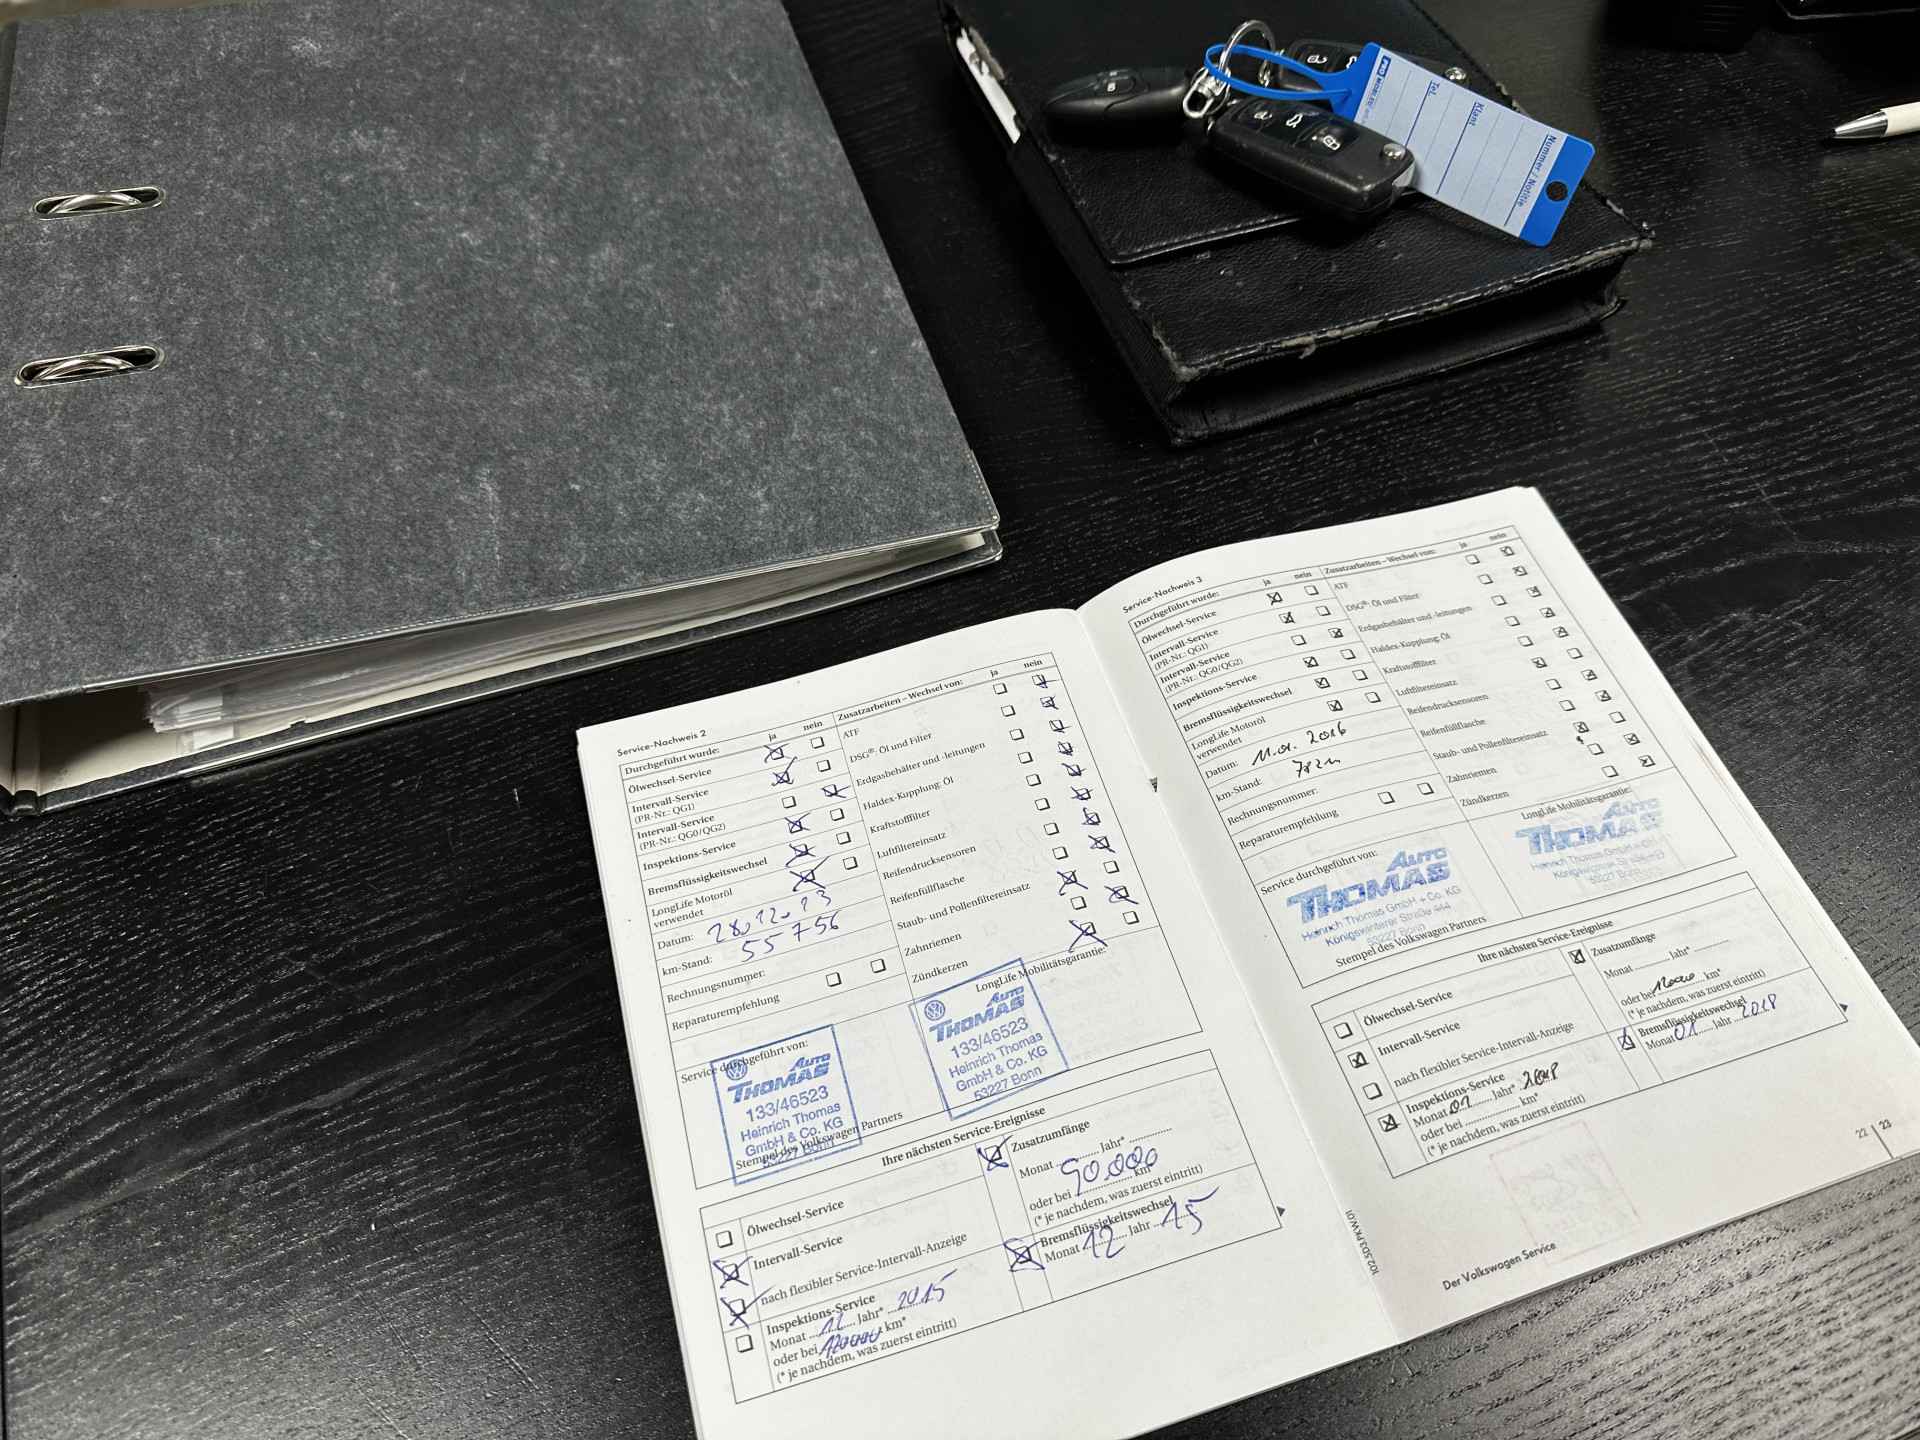 Tel.
Klant
Nummer / Notitie
Service-Nachweis 2
Durchgeführt wurde: ja nein
Ölwechsel-Service
Intervall-Service
(PR-Nr.: QG1)
Intervall-Service
(PR-Nr.: QG0/QG2)
Inspektions-Service
Bremsflüssigkeitswechsel
LongLife Motoröl
verwendet
Datum: 28.12.13
km-Stand: 55756
Rechnungsnummer:
Reparaturempfehlung
Zusatzarbeiten – Wechsel von: ja nein
ATF
DSG®: Öl und Filter
Erdgasbehälter und -leitungen
Haldex-Kupplung: Öl
Kraftstofffilter
Luftfiltereinsatz
Reifendrucksensoren
Reifenfüllflasche
Staub- und Pollenfiltereinsatz
Zahnriemen
Zündkerzen
Service durchgeführt von:
AUTO
THOMAS
133/46523
Heinrich Thomas
GmbH & Co. KG
53227 Bonn
Stempel des Volkswagen Partners
LongLife Mobilitätsgarantie:
AUTO
THOMAS
133/46523
Heinrich Thomas
GmbH & Co. KG
53227 Bonn
Ihre nächsten Service-Ereignisse
Ölwechsel-Service
Intervall-Service
nach flexibler Service-Intervall-Anzeige
Inspektions-Service
Monat 12 Jahr* 2015
oder bei 120000 km*
(* je nachdem, was zuerst eintritt)
Zusatzumfänge
Monat Jahr*
oder bei 90.000 km*
(* je nachdem, was zuerst eintritt)
Bremsflüssigkeitswechsel
Monat 12 Jahr 15
Service-Nachweis 3
Durchgeführt wurde: ja nein
Ölwechsel-Service
Intervall-Service
(PR-Nr.: QG1)
Intervall-Service
(PR-Nr.: QG0/QG2)
Inspektions-Service
Bremsflüssigkeitswechsel
LongLife Motoröl
verwendet
Datum: 11.01.2016
km-Stand:
Rechnungsnummer:
Reparaturempfehlung
Zusatzarbeiten – Wechsel von: ja nein
ATF
DSG®: Öl und Filter
Erdgasbehälter und -leitungen
Haldex-Kupplung: Öl
Kraftstofffilter
Luftfiltereinsatz
Reifendrucksensoren
Reifenfüllflasche
Staub- und Pollenfiltereinsatz
Zahnriemen
Zündkerzen
Service durchgeführt von:
AUTO
THOMAS
Heinrich Thomas GmbH + Co. KG
Königswinterer Straße 444
53227 Bonn
Stempel des Volkswagen Partners
LongLife Mobilitätsgarantie:
AUTO
THOMAS
Heinrich Thomas GmbH + Co. KG
53227 Bonn
Ihre nächsten Service-Ereignisse
Ölwechsel-Service
Intervall-Service
nach flexibler Service-Intervall-Anzeige
Inspektions-Service
Monat 01 Jahr* 2018
oder bei km*
(* je nachdem, was zuerst eintritt)
Zusatzumfänge
Monat Jahr*
oder bei km*
(* je nachdem, was zuerst eintritt)
Bremsflüssigkeitswechsel
Monat 01 Jahr 2018
102.5D3.PKW.01
Der Volkswagen Service
22 | 23